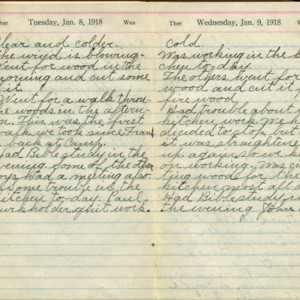 Ther Tuesday, Jan. 8, 1918 Wea
lear and colder.
The wind is blowing.
ent for wood in the
morning and cut some
it.
Went for a walk throu
he woods in the aftern
n. This was the first
walk we took since
back at Camp.
ad Bible study in the
evening. Some of the other
boys had a meeting abo
some trouble in the
itchen to day. Paul
urkholder quit work.
Ther Wednesday, Jan. 9, 1918 Wea
cold.
Was working in the
camp to day
The others went for
wood and cut it
fire wood.
Had trouble about
kitchen work. We h
decided to stop but
it was straightene
up again so we
on working. Was cu
ting wood for the
kitchen most all
Had Bible study in
The evening. John